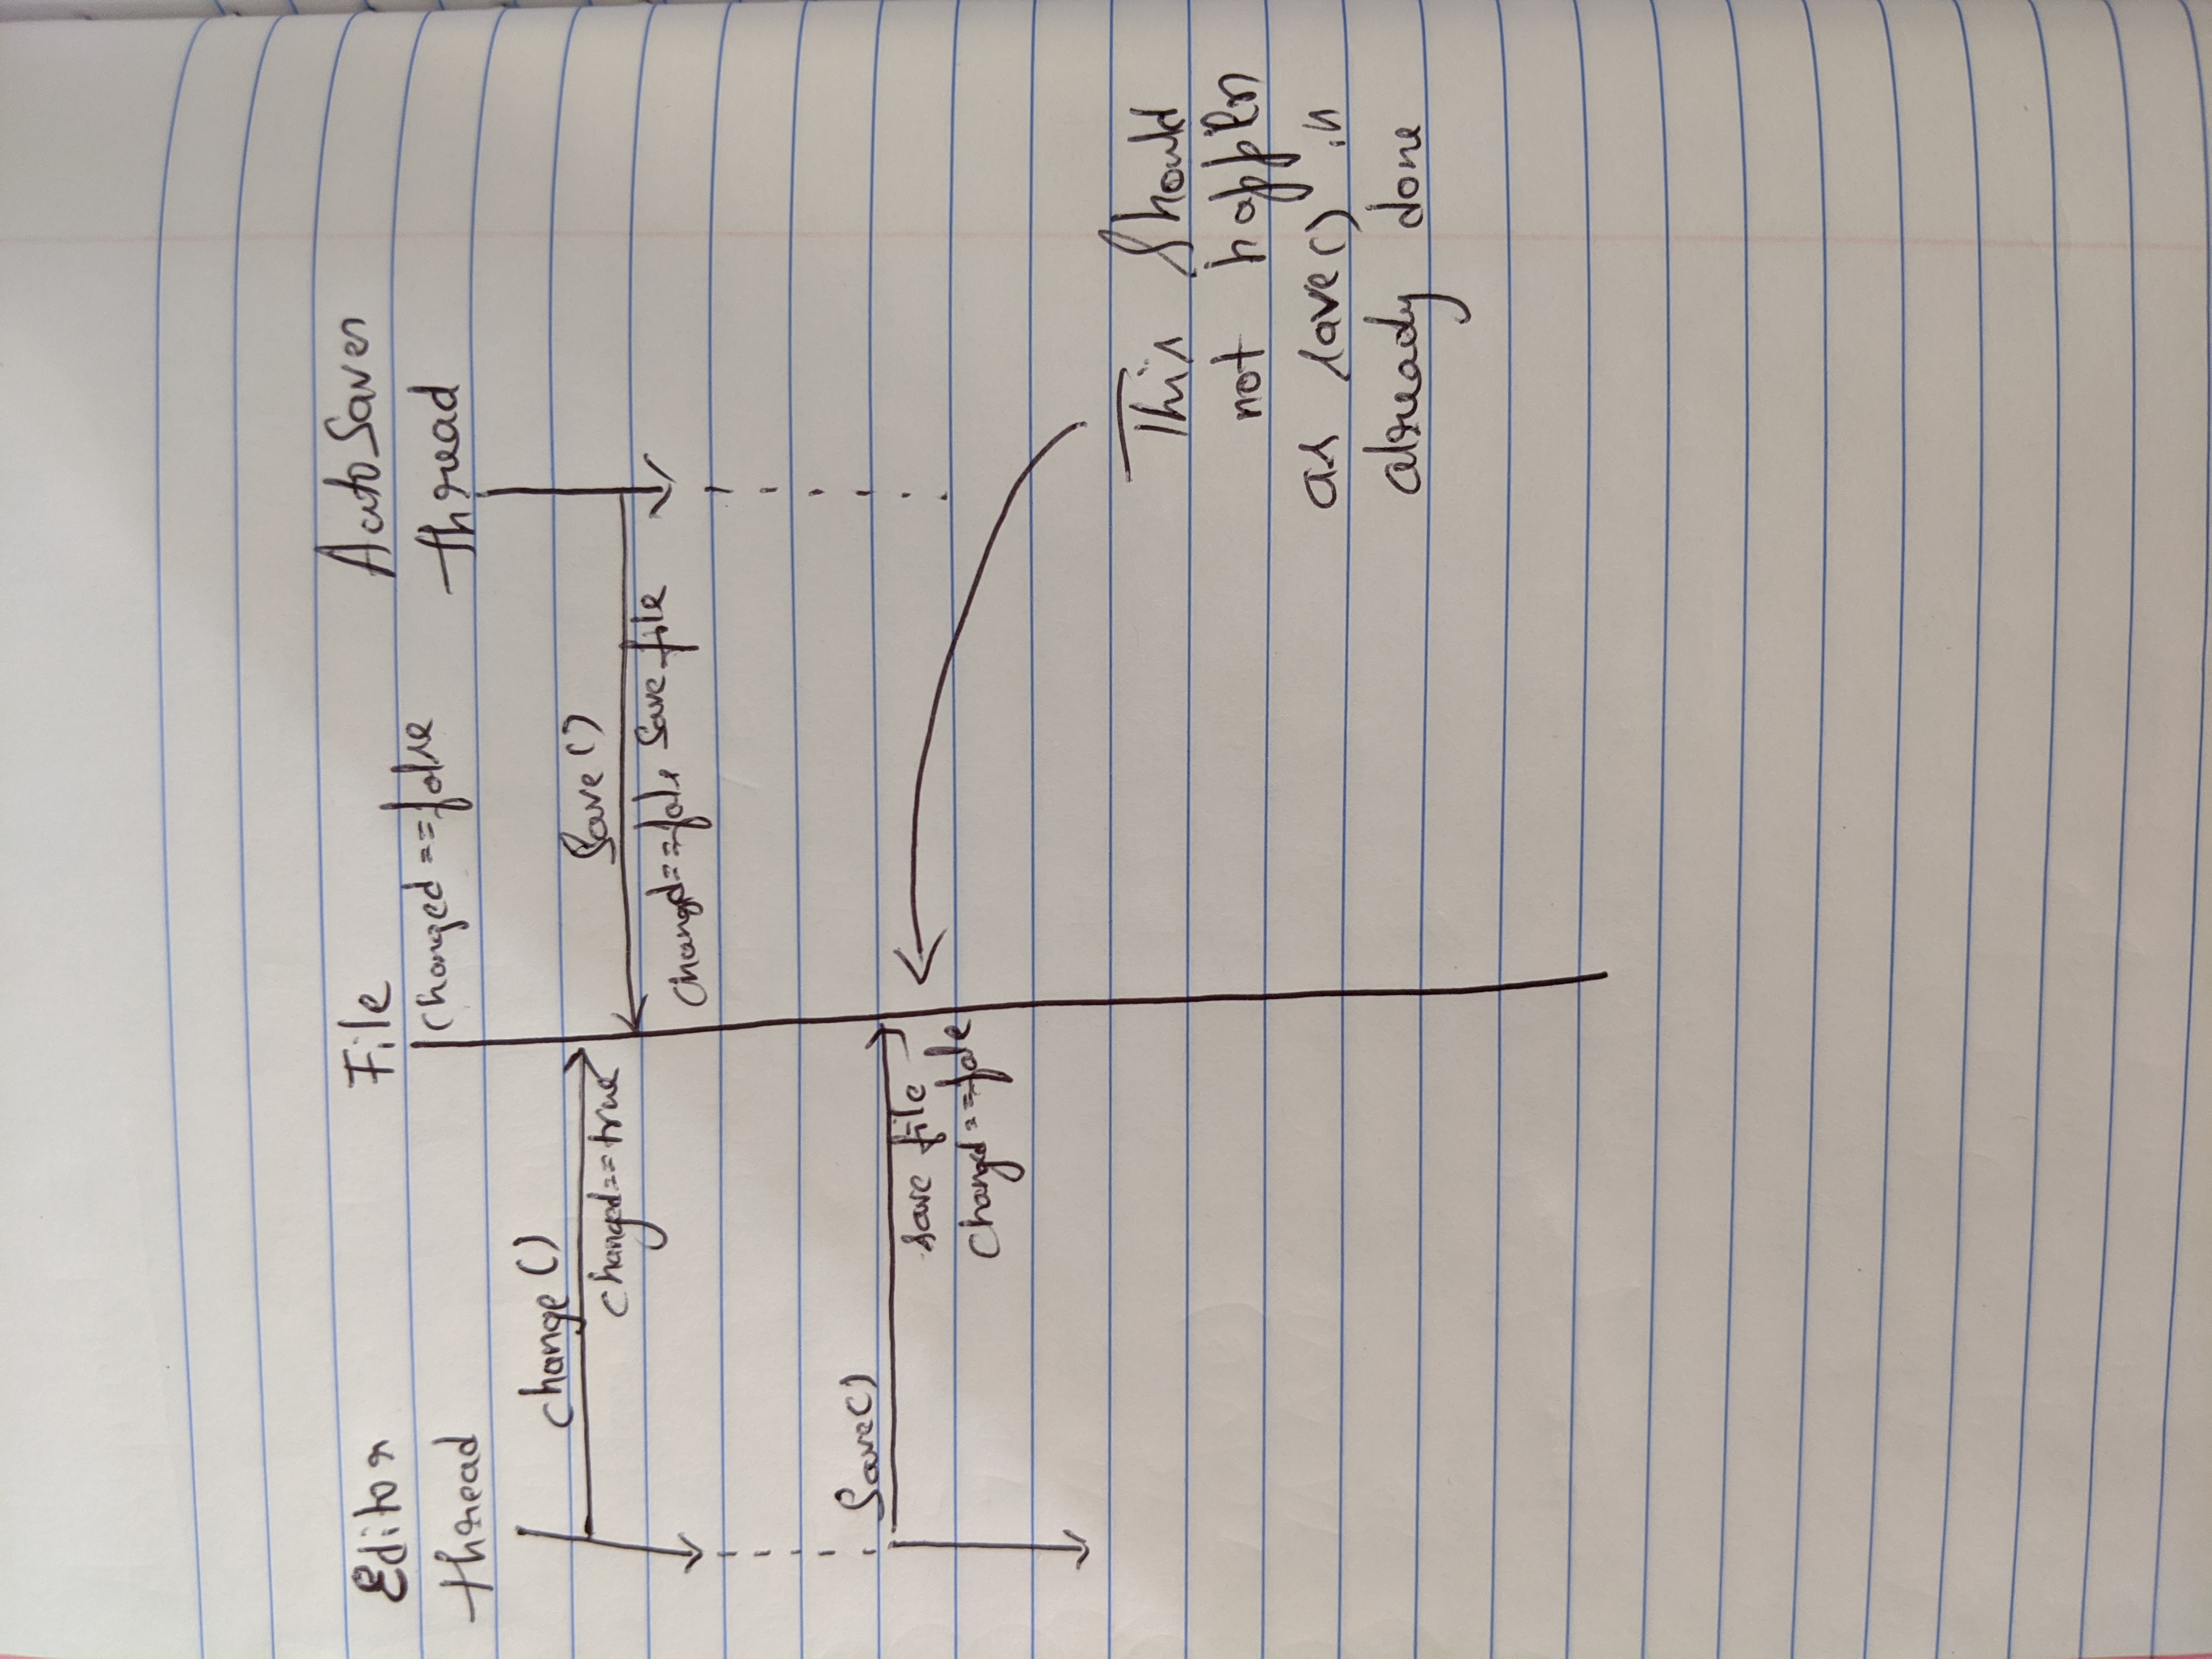 Editor
thread
File
changed == false
AutoSaver
thread
change ()
changed == true
Save ()
changed == false Save file
Save()
save file
changed == false
This should
not happen
as save() is
already done